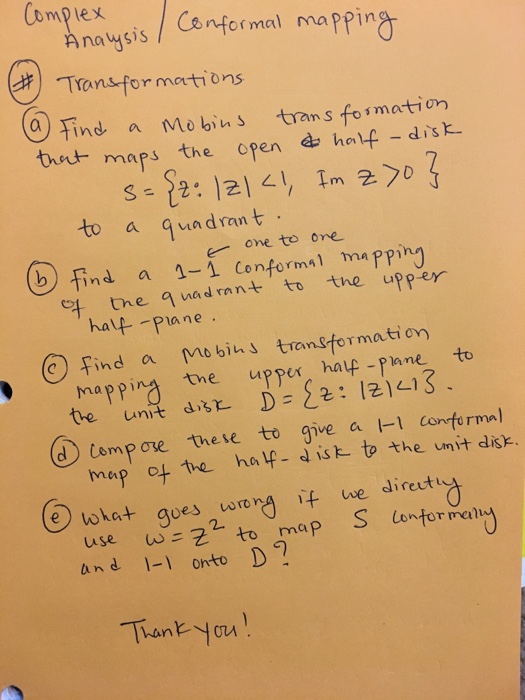 Complex
Analysis / Conformal mapping
(#) Transformations
(a) Find a Mobius transformation
that maps the open half-disk
S = {z: |z| < 1, Im z > 0}
to a quadrant.
← one to one
(b) find a 1-1 conformal mapping
of the quadrant to the upper
half-plane.
(c) Find a Mobius transformation
mapping the upper half-plane to
the unit disk D = {z: |z| < 1}.
(d) Compose these to give a 1-1 conformal
map of the half-disk to the unit disk.
(e) what goes wrong if we directly
use w = z² to map S conformally
and 1-1 onto D?
Thank you!